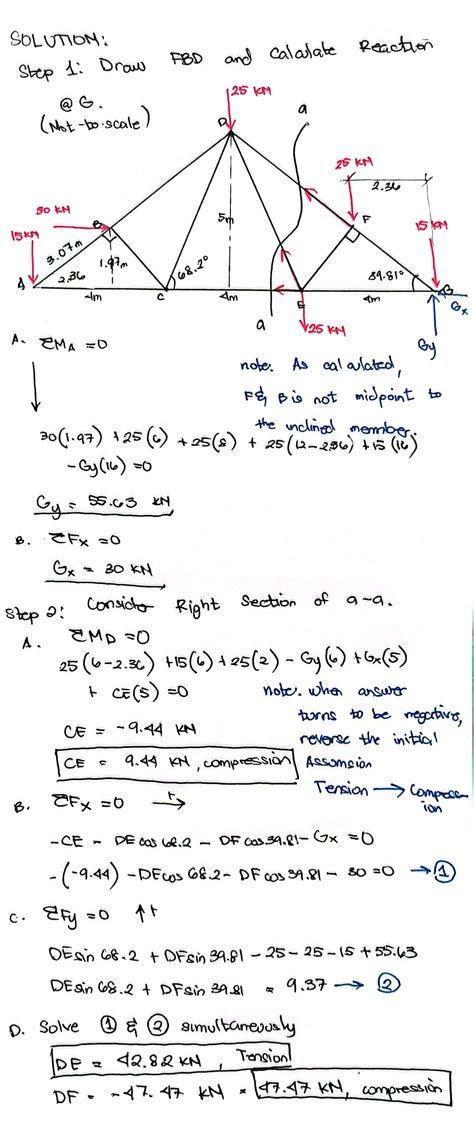 SOLUTION:
Step 1: Draw FBD and Calculate Reaction
@ G.
(Not-to-scale)
25 KN
a
D
25 KN
2.36
30 KN
15 KN
B
5m
F
15 KN
3.07m
1.97m
2.36
68.2°
39.81°
A
4m
C
4m
E
4m
G
Gx
a
25 KN
Gy
A. ΣMA = 0
note. As calculated,
F & B is not midpoint to
the inclined member.
30(1.97) + 25(6) + 25(8) + 25(12-2.36) + 15(16)
- Gy(16) = 0
Gy = 55.63 KN
B. ΣFx = 0
Gx = 30 KN
Step 2: Consider Right Section of a-a.
A. ΣMD = 0
25(6-2.36) + 15(6) + 25(2) - Gy(6) + Gx(5)
+ CE(5) = 0
note. when answer
turns to be negative,
reverse the initial
Assumsion
Tension → Compression
CE = -9.44 KN
CE = 9.44 KN, compression
B. ΣFx = 0 →+
-CE - DE cos 68.2 - DF cos 39.81 - Gx = 0
-(-9.44) - DE cos 68.2 - DF cos 39.81 - 30 = 0 → 1
C. ΣFy = 0 ↑+
DE sin 68.2 + DF sin 39.81 - 25 - 25 - 15 + 55.63
DE sin 68.2 + DF sin 39.81 = 9.37 → 2
D. Solve 1 & 2 simultaneously
DE = 42.82 KN, Tension
DF = -47.47 KN = 47.47 KN, compression